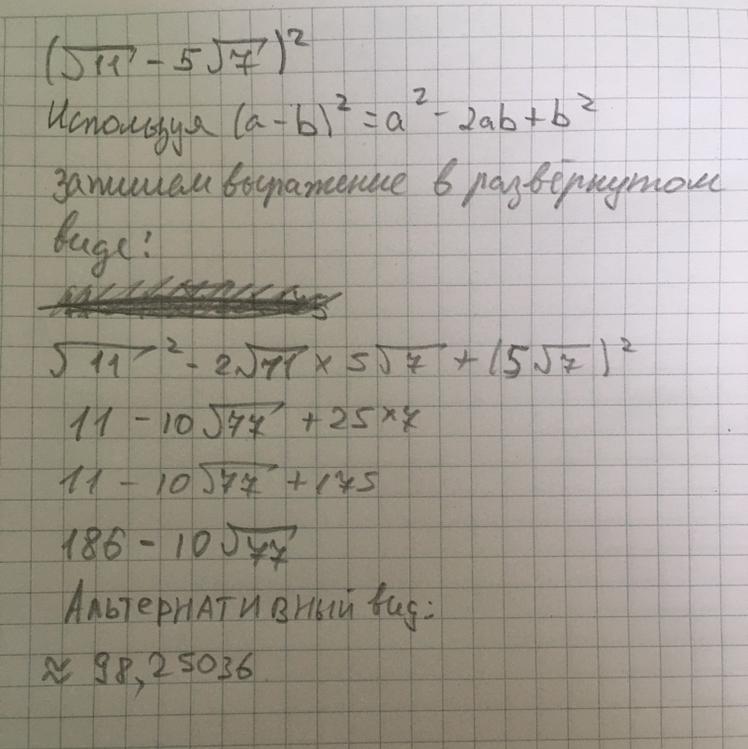 (√11 - 5√7)²
Используя (a-b)² = a² - 2ab + b²
запишем выражение в развёрнутом
виде:
√11² - 2√11 × 5√7 + (5√7)²
11 - 10√77 + 25×7
11 - 10√77 + 175
186 - 10√77
Альтернативный вид:
≈ 98,25036